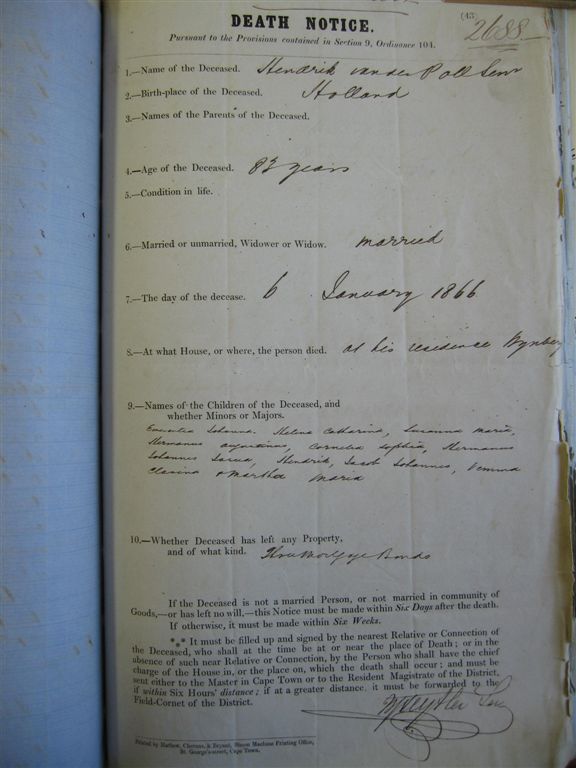 (43
2688
DEATH NOTICE.
Pursuant to the Provisions contained in Section 9, Ordinance 104.
1.—Name of the Deceased. Hendrik van der Poll Senr
2.—Birth-place of the Deceased. Holland
3.—Names of the Parents of the Deceased.
4.—Age of the Deceased. 83 years
5.—Condition in life.
6.—Married or unmarried, Widower or Widow. married
7.—The day of the decease. 6 January 1866
8.—At what House, or where, the person died. at his residence Wynberg
9.—Names of the Children of the Deceased, and
whether Minors or Majors.
Johanna, Helena Catharina, Susanna Maria,
Hermanus Augustinus, Cornelia Sophia, Hermanus
Johannes, Hendrik, Jacob Johannes,
Clasina & Martha Maria
10.—Whether Deceased has left any Property,
and of what kind. Bonds
If the Deceased is not a married Person, or not married in community of
Goods,—or has left no will,—this Notice must be made within Six Days after the death.
If otherwise, it must be made within Six Weeks.
*** It must be filled up and signed by the nearest Relative or Connection of
the Deceased, who shall at the time be at or near the place of Death; or in the
absence of such near Relative or Connection, by the Person who shall have the chief
charge of the House in, or the place on, which the death shall occur; and must be
sent either to the Master in Cape Town or to the Resident Magistrate of the District,
if within Six Hours' distance; if at a greater distance, it must be forwarded to the
Field-Cornet of the District.
Printed by Mathew, & Bryant, Steam Machine Printing Office,
St. George's-street, Cape Town.